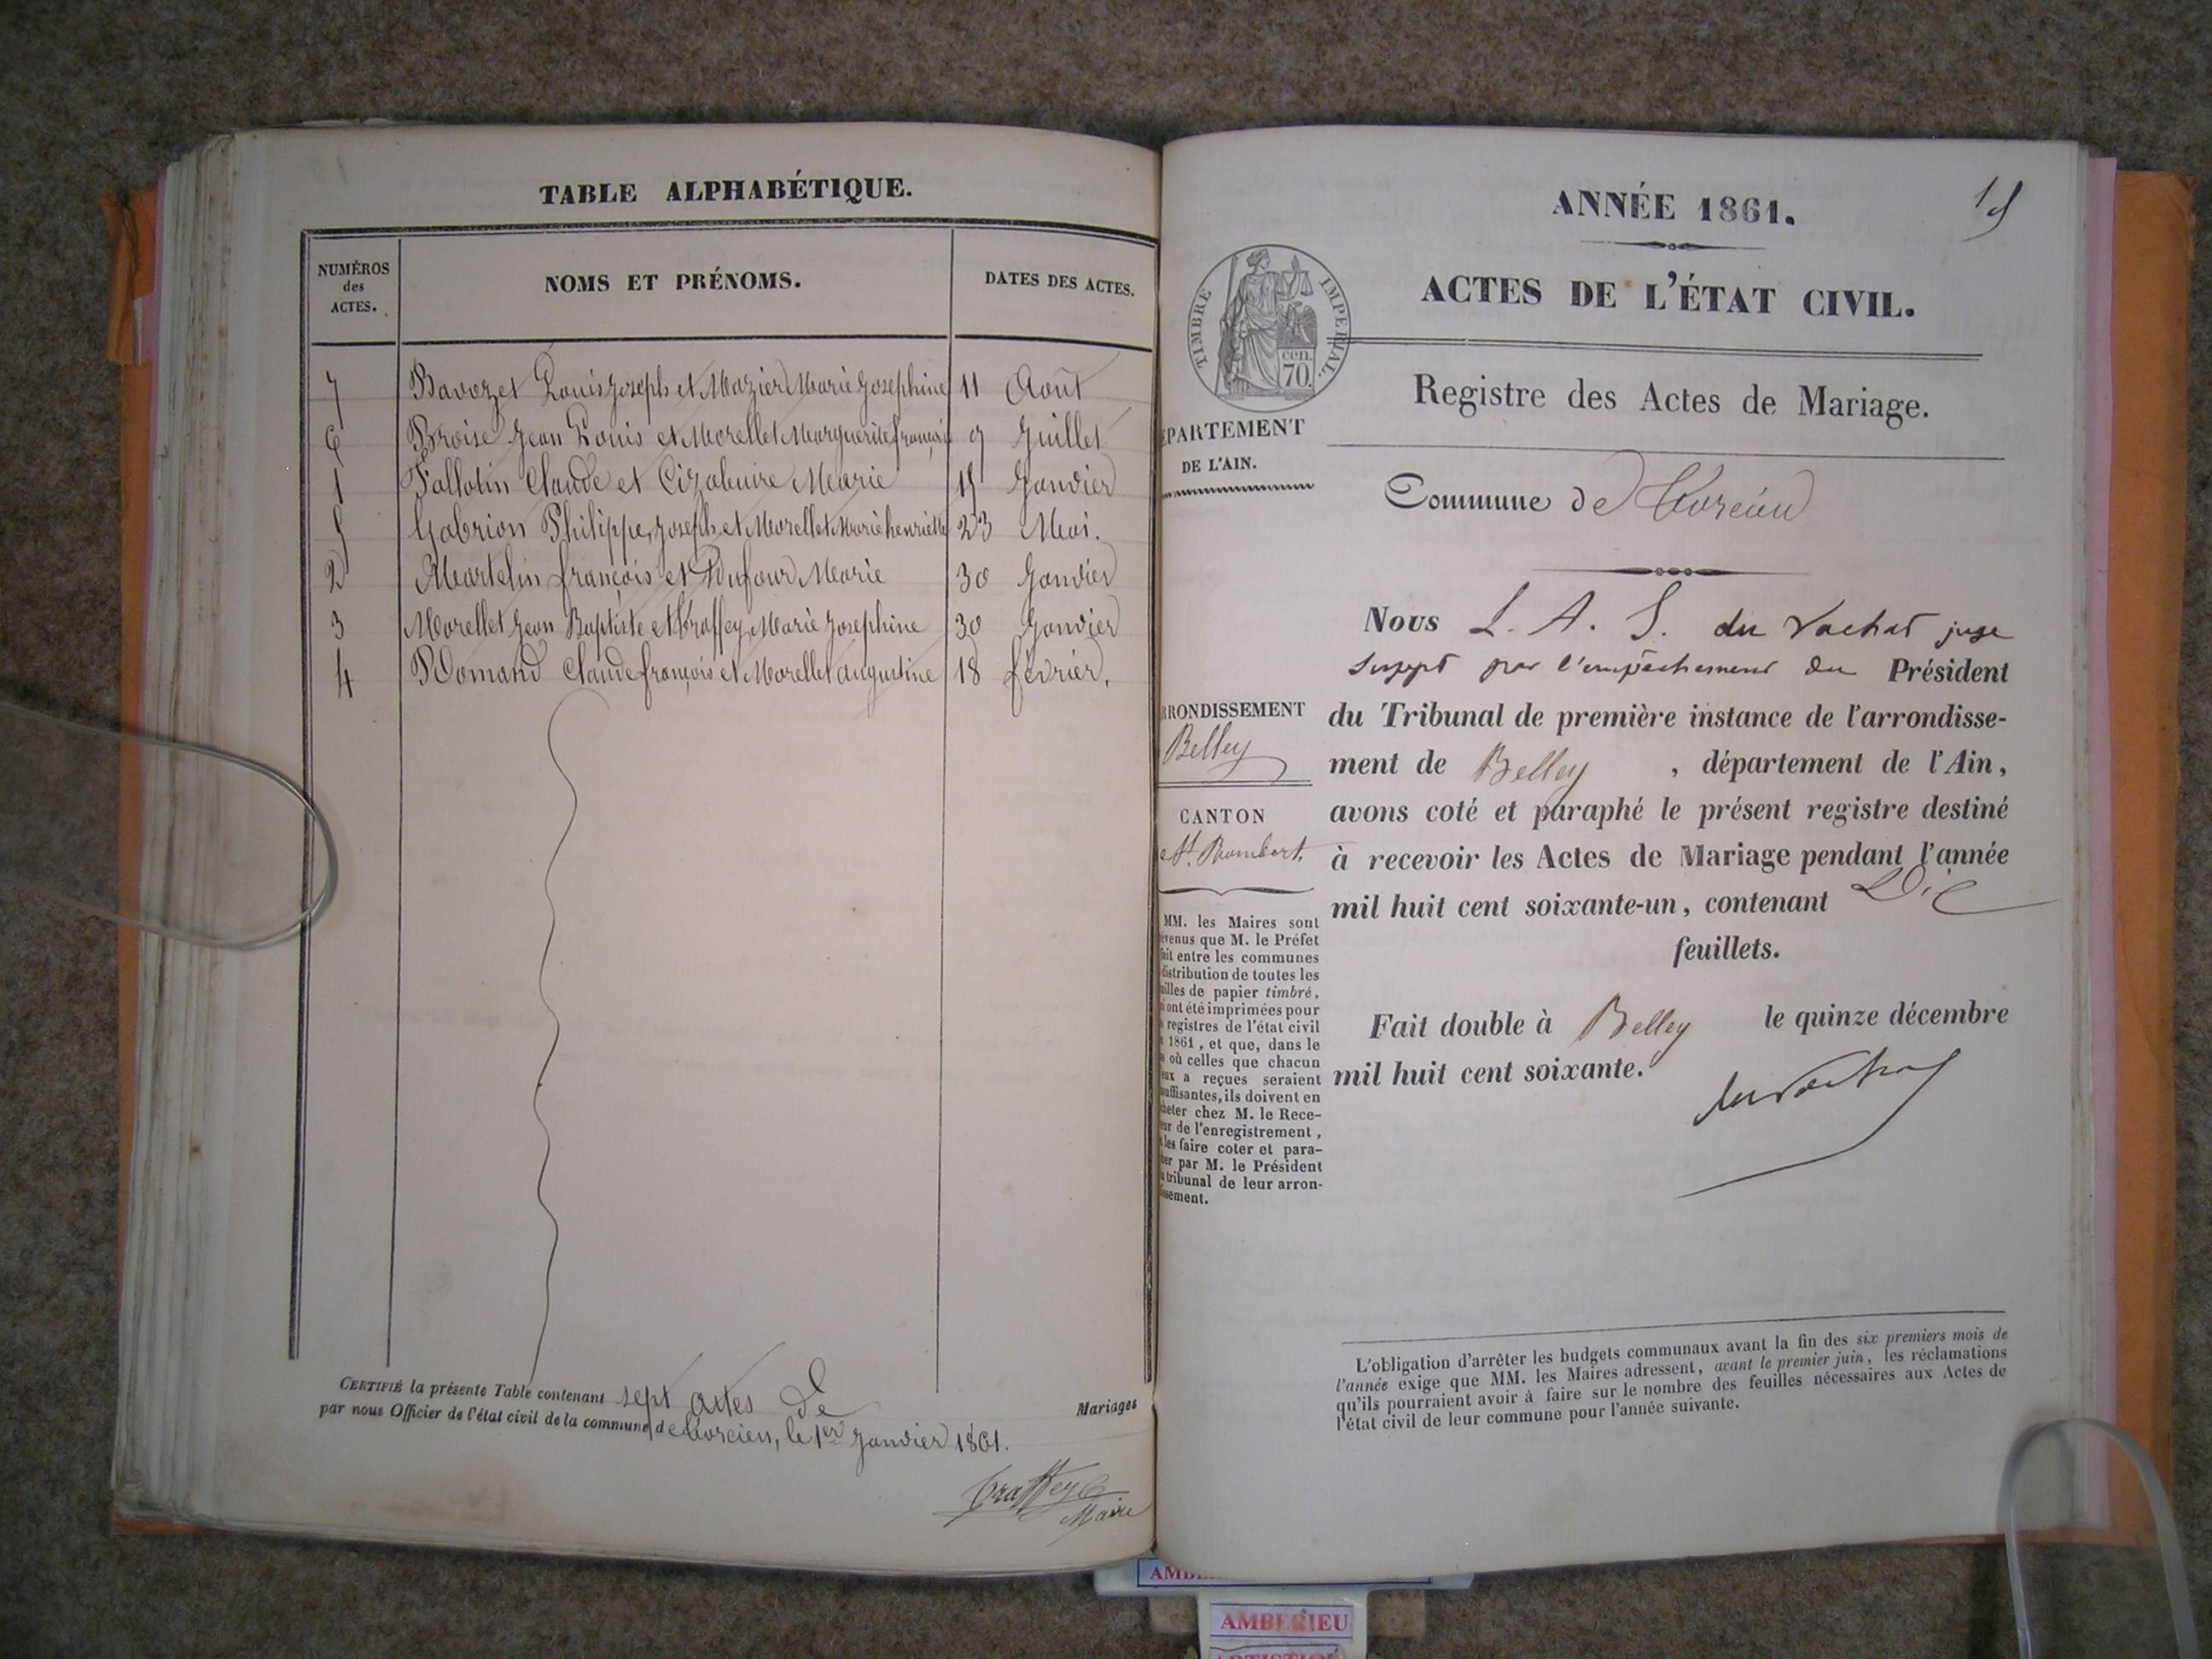 TABLE ALPHABÉTIQUE.
NUMÉROS des ACTES.
NOMS ET PRÉNOMS.
DATES DES ACTES.
7 Bavozet Louis Joseph et Mazier Marie Josephine 11 Août
6 Broise Jean Louis et Morellet Marguerite 9 Juillet
1 Fallotin Claude et Marie 15 Janvier
5 Gabrion Philippe Joseph et Morellet Marie henriette 23 Mai.
2 Martelin françois et Dufour Marie 30 Janvier
3 Morellet Jean Baptiste et Craffey Marie Josephine 30 Janvier
4 Romand Claude françois et Morellet augustine 18 février.
CERTIFIÉ la présente Table contenant sept actes de Mariages
par nous Officier de l'état civil de la commune de Corcieu, le 1er Janvier 1861.
Craffey
Maire
ANNÉE 1861.
ACTES DE L'ÉTAT CIVIL.
TIMBRE IMPERIAL.
cen.
70.
Registre des Actes de Mariage.
EPARTEMENT
DE L'AIN.
Commune de Corcieu
Nous L. A. S. du Vachat juge
suppt par l'empêchement du Président
du Tribunal de première instance de l'arrondisse-
ment de Belley , département de l'Ain,
avons coté et paraphé le présent registre destiné
à recevoir les Actes de Mariage pendant l'année
mil huit cent soixante-un, contenant Dix
feuillets.
Fait double à Belley le quinze décembre
mil huit cent soixante.
du Vachat
RRONDISSEMENT
Belley
CANTON
St. Rambert.
MM. les Maires sont
évenus que M. le Préfet
ait entre les communes
distribution de toutes les
uilles de papier timbré,
i ont été imprimées pour
s registres de l'état civil
n 1861, et que, dans le
s où celles que chacun
eux a reçues seraient
suffisantes, ils doivent en
cheter chez M. le Rece-
ur de l'enregistrement,
t les faire coter et para-
her par M. le Président
u tribunal de leur arron-
issement.
L'obligation d'arrêter les budgets communaux avant la fin des six premiers mois de
l'année exige que MM. les Maires adressent, avant le premier juin, les réclamations
qu'ils pourraient avoir à faire sur le nombre des feuilles nécessaires aux Actes de
l'état civil de leur commune pour l'année suivante.
AMBERIEU